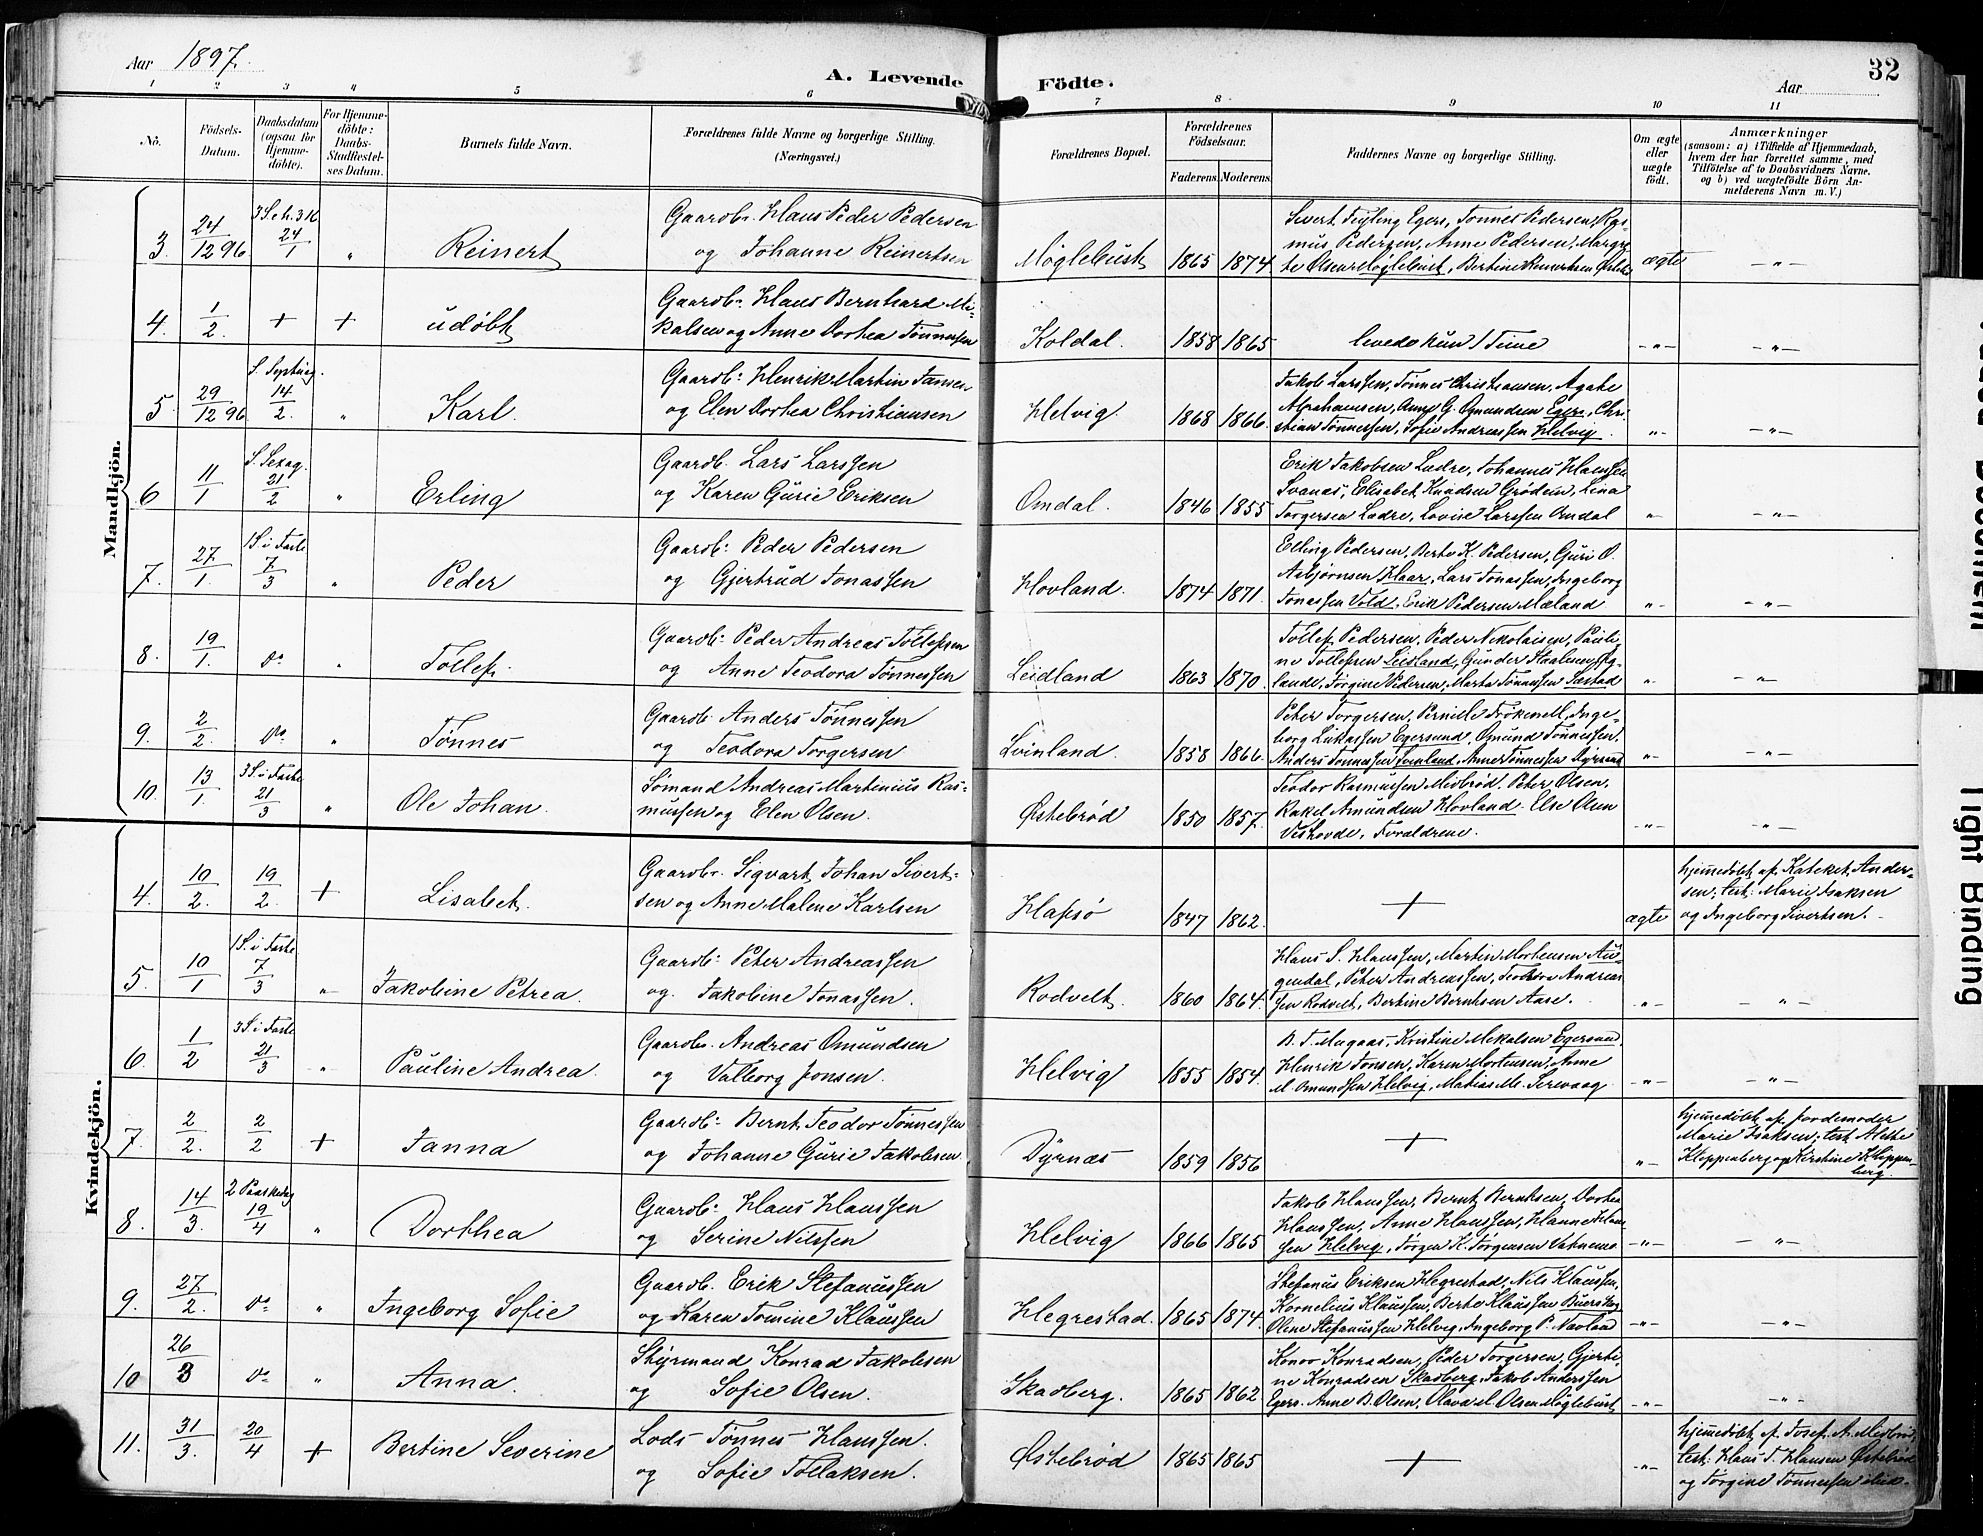 Aar 1897.
A. Levende Födte.
32
Aar
1 2 3 4 5 6 7 8 9 10 11
No.
Födsels-Datum.
Daabsdatum (ogsaa for Hjemme-döbte).
For Hjemme-döbte: Daabs-Stadfæstel-ses Datum.
Barnets fulde Navn.
Forældrenes fulde Navne og borgerlige Stilling. (Næringsvei.)
Forældrenes Bopæl.
Forældrenes Födselsaar.
Faderens. Moderens.
Faddernes Navne og borgerlige Stilling.
Om ægte eller uægte födt.
Anmærkninger
(saasom: a) i Tilfælde af Hjemmedaab, hvem der har forrettet samme, med Tilföielse af to Daabsvidners Navne. og b) ved uægtefödte Börn An-melderens Navn m. V.)
Mandkjön.
3. 24/12 96 3 S. e. h. 3 K 24/1 " Reinert Gaardbr. Hans Peder Pedersen
og Johanne Reinertsen Møglebust 1865 1874 Sivert Tejling Egers., Tønnes Pedersen, Ras-
mus Pedersen, Anne Pedersen, Margre-
te Olsen Møglebust, Bertine Reinertsen ægte -"-
4. 1/2 + + udøbt Gaardbr. Hans Bernhard Mi-
kalsen og Anne Dorthea Tønnessen Koldal. 1858 1865 levede kun 1 Time -"- -"-
5. 29/12 96 S. Septuag. 14/2. " Karl. Gaardb: Henrik Martin Jansen
og Elen Dorthea Christiansen Helvig 1868 1866. Jakob Larssen, Tønnes Christiansen, Agate
Abrahamsen, Anne G. Omundsen Egers., Chri-
stian Tønnessen, Sofie Andreassen Helvig. "- -"-
6 11/1 S. Sexag. 21/2 " Erling Gaardb. Lars Larssen
og Karen Gurie Eriksen Omdal. 1846 1855 Erik Jakobsen Ludre, Johannes Hanssen
Svanæs, Elisabet Knudsen Grødem, Lina
Torgersen Ludre, Lovise Larssen Omdal "- -"-
7. 27/1 1 S. i Faste 7/3 " Peder Gaardb: Peder Pedersen
og Gjertrud Jonassen Hovland. 1874 1871. Elling Pedersen, Berte K. Pedersen, Guri O.
Asbjørnsen Haar, Lars Jonassen, Ingeborg
Jonassen Vold, Erik Pedersen Mæland "- -"-
8. 19/1. do " Tollef. Gaardb: Peder Andreas Tollefsen
og Anne Teodora Tønnessen Leidland 1863 1870. Tollef Pedersen, Peder Nikolaisen, Pauli-
ne Tollefsen Leidland, Gunder Staalesen
Torgine Pedersen, Marta Tønnessen "- -"-
9. 2/2. do " Tønnes Gaardb. Anders Tønnessen
og Teodora Torgersen Svinland. 1858 1866. Peter Torgersen, Pernille Frøkenell, Inge-
borg Lukassen Egersund, Omund Tønnessen,
Anders Tønnessen Svinland, Anne Tønnessen "- -"-
10. 13/1. 3 S. i Faste 21/3 " Ole Johan. Sømand Andreas Martinius Ras-
mussen og Elen Olsen. Østebrød 1850 1857. Teodor Rasmussen Midbrød, Peter Olsen,
Rakel Amundsen Hovland. Else Olsen
Veshovde, Forældrene. -"- -"-
Kvindekjön.
4. 10/2. 19/2. + Lisabet. Gaardbr. Sigvart Johan Sivert-
sen og Anne Malene Karlsen Hafsø 1847 1862. + ægte hjemmedøbt af Kateket Ander-
sen; test: Marie Isaksen
og Ingeborg Sivertsen.
5. 10/1 1 S. i Faste 7/3 "- Jakobine Petrea. Gaardb: Peter Andreassen
og. Jakobine Jonassen. Rodvelt. 1860 1864. Hans S. Hanssen, Martin Mortensen Au-
gendal, Peter Andreassen, Teodor Andreas-
sen Rodvelt, Bertine Berntsen Aase. "- -"-
6. 1/2 3 S. i Faste 21/3 "- Pauline Andrea. Gaardbr. Andreas Omundsen
og Valborg Jonsen. Helvig 1855 1854. B. T. Mugaas, Kristine Mikalsen Egersund,
Henrik Jonsen, Karen Mortensen, Anne
M. Omundsen Helvig, Matias M. Servaag. -"- -"-
7. 2/2. 2/2 + Janna Gaardb: Bernt Teodor Tønnessen
og Johanne Gurie Jakobsen Dyrnæs 1859 1856 + "- hjemmedøbt af Jordemoder
Marie Isaksen; test. Alethe
Kleppenberg og Kirstine Kleppen-
berg.
8. 14/3. 2 Paaskedag 19/4 " Dorthea Gaardb: Hans Hanssen
og Serine Nilssen Helvig 1866 1865 Jakob Hanssen, Bernt Berntsen, Dorthea
Hanssen, Anne Hanssen, Hanne Hans-
sen Helvig, Jørgen K. Jørgensen Vatnemo -"- -"-
9. 27/2. do " Ingeborg Sofie Gaardb. Erik Stefanussen
og Karen Tomine Klaussen Hegrestad. 1865 1874. Stefanus Eriksen Hegrestad, Nils Klaussen,
Kornelius Klaussen, Berte Klaussen
Oline Stefanussen Helvig, Ingeborg P. -"- -"-
10 26/3 do " Anna. Styrmand Konrad Jakobsen
og Sofie Olsen. Skadberg. 1865 1862 Konor Konradsen, Peder Torgersen, Gjerti-
ne Konradsen Skadberg, Jakob Anderssen
Egers. Anne B. Olsen, Olava M. Olsen Møglebust -"- -"-
11. 31/3. 20/4 + Bertine Severine Lods Tønnes Hanssen.
og Sofie Tollaksen. Østebrød 1865 1865 + -"- hjemmedøbt af Josef A. Midbrød,
test: Hans T. Hansen Østebrød
og Torgine Tønnessen
Tight Binding